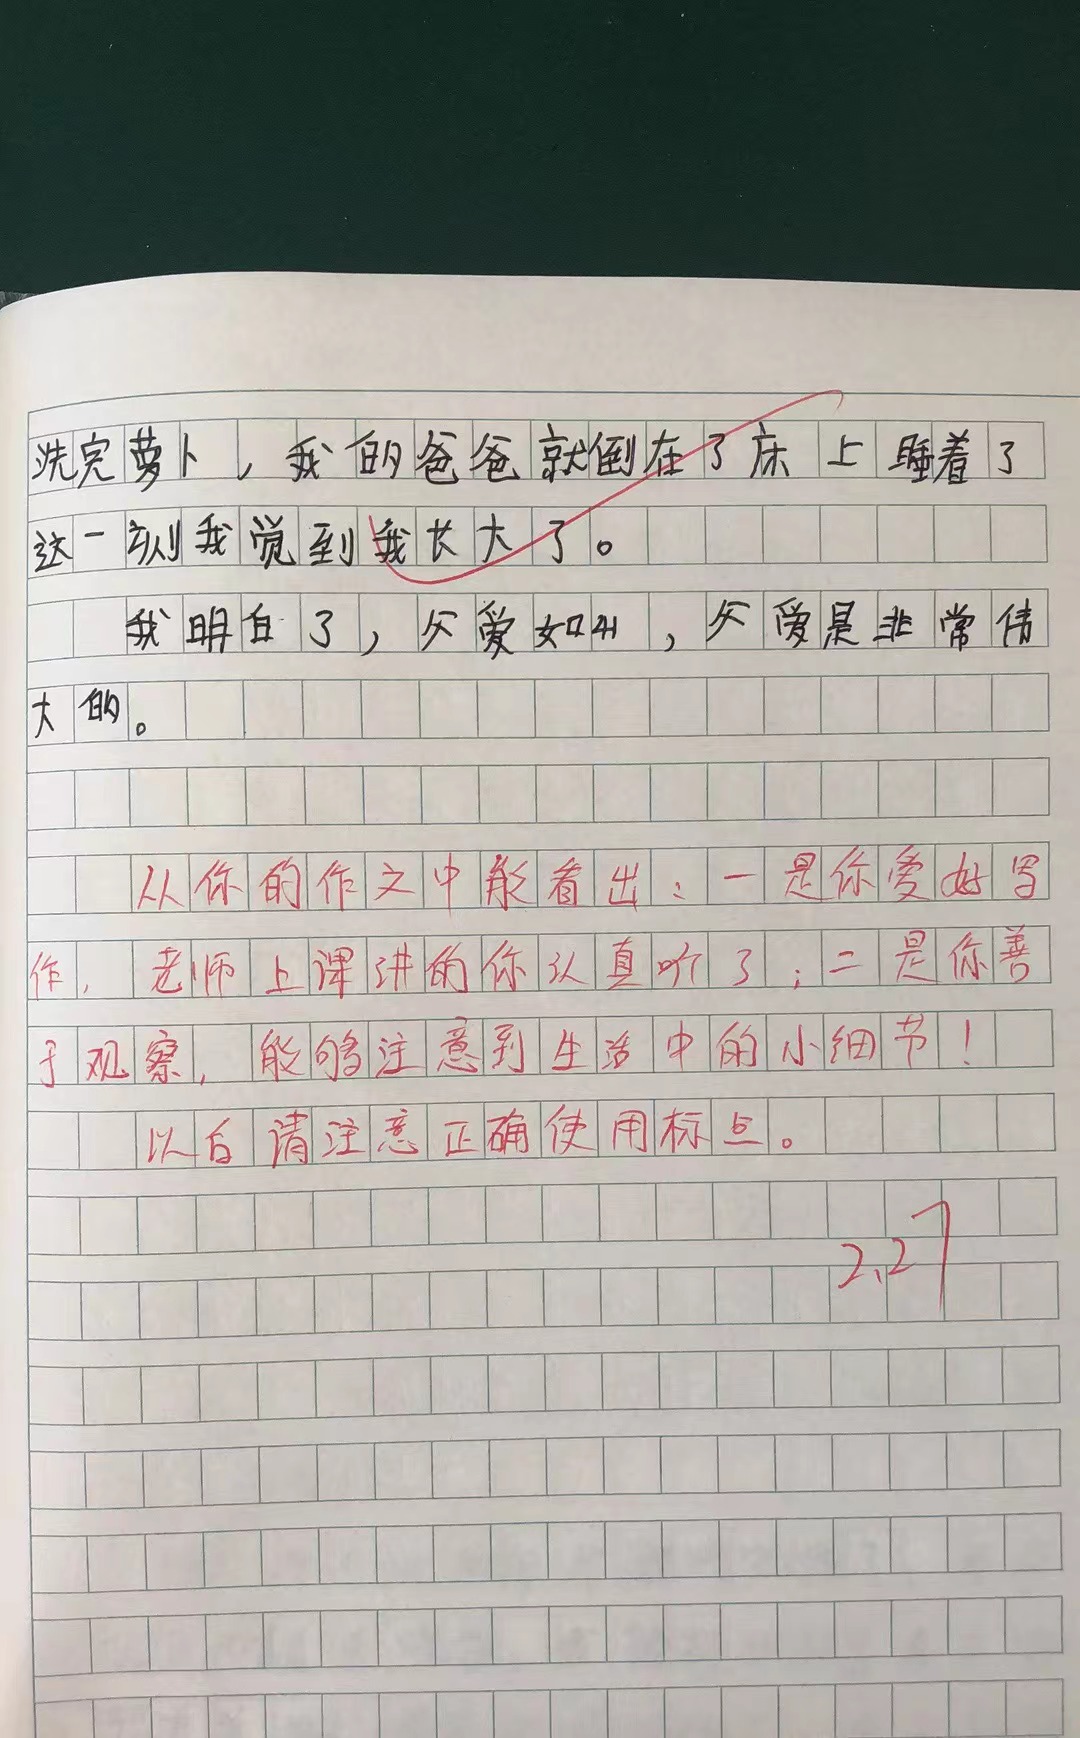 洗完萝卜,我的爸爸就倒在了床上睡着了
这一刻我觉到我长大了。
我明白了,父爱如山,父爱是非常伟
大的。
从你的作文中能看出:一是你爱好写
作,老师上课讲的你认真听了;二是你善
于观察,能够注意到生活中的小细节!
以后请注意正确使用标点。
2.27